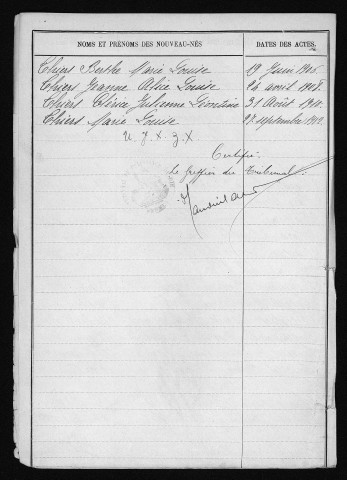 NOMS ET PRÉNOMS DES NOUVEAU-NÉS
DATES DES ACTES.
Thiers Berthe Marie Louise 19 Juin 1906
Thiers Jeanne Alice Louise 24 avril 1908.
Thiers Julienne 31 Août 1910.
Thiers Marie Louise septembre 1912
U. Y. X. Z. X
Certifié:
Le Greffier du Tribunal